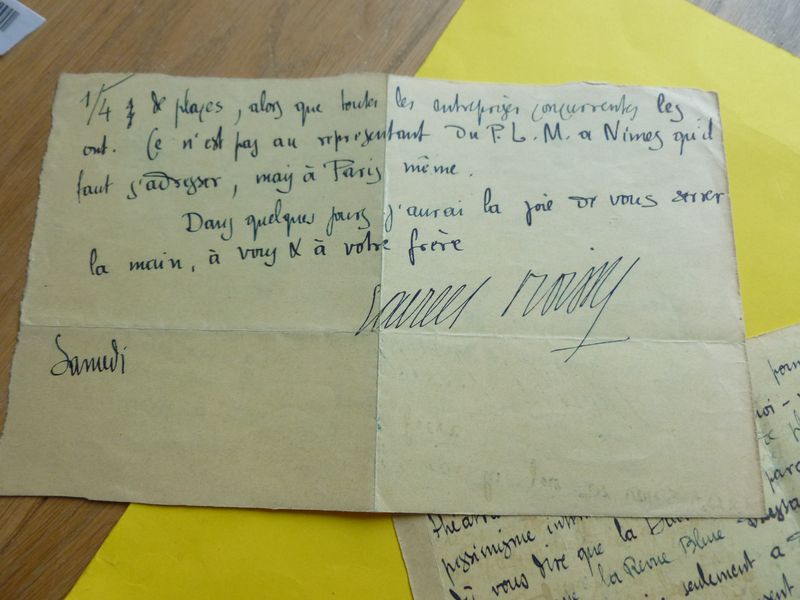 1/4 de places, alors que toutes les entreprises concurrentes les
ont. Ce n'est pas au représentant du P.L.M. a Nimes qu'il
faut s'adresser, mais à Paris même.
Dans quelques jours j'aurai la joie de vous serrer
la main, à vous & à votre frère
Samedi
théatra
pessimisme
à vous dire que la
la Revue Bleue
seulement a